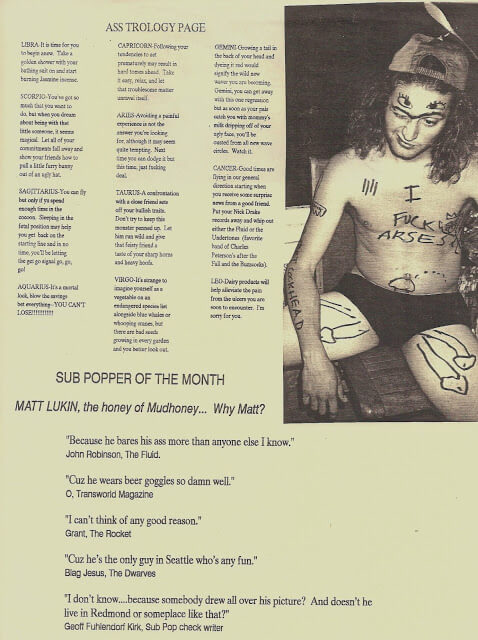 ASS TROLOGY PAGE
LIBRA-It is time for you
to begin anew. Take a
golden shower with your
bathing suit on and start
burning Jasmine incense.
SCORPIO-You've got so
much that you want to
do, but when you dream
about being with that
little someone, it seems
magical. Let all of your
commitments fall away and
show your friends how to
pull a little furry bunny
out of an ugly hat.
SAGITTARIUS-You can fly
but only if yu spend
enough time in the
cocoon. Sleeping in the
fetal position may help
you get back on the
starting line and in no
time, you'll be letting
the get go signal go, go,
go!
AQUARIUS-It's a mortal
lock, blow the savings
bet everything--YOU CAN'T
LOSE!!!!!!!!!!!!
CAPRICORN-Following your
tendencies to set
prematurely may result in
hard times ahead. Take
it easy, relax, and let
that troublesome matter
unravel itself.
ARIES-Avoiding a painful
experience is not the
answer you're looking
for, although it may seem
quite tempting. Next
time you can dodge it but
this time, just fucking
deal.
TAURUS-A confrontation
with a close friend sets
off your bullish traits.
Don't try to keep this
monster penned up. Let
him run wild and give
that feisty friend a
taste of your sharp horns
and heavy hoofs.
VIRGO-It's strange to
imagine yourself as a
vegetable on an
endangered species list
alongside blue whales or
whooping cranes, but
there are bad seeds
growing in every garden
and you better look out.
GEMINI-Growing a tail in
the back of your head and
dyeing it red would
signify the wild new
waver you are becoming.
Gemini, you can get away
with this one regression
but as soon as your pals
catch you with mommy's
milk dripping off of your
ugly face, you'll be
ousted from all new wave
circles. Watch it.
CANCER-Good times are
flying in our general
direction starting when
you receive some surprise
news from a good friend.
Put your Nick Drake
records away and whip out
either the Fluid or the
Undertones (favorite
band of Charles
Peterson's after the
Fall and the Buzzcocks).
LEO-Dairy products will
help alleviate the pain
from the ulcers you are
soon to encounter. I'm
sorry for you.
I
FUCK
ARSES
HEAD
SUB POPPER OF THE MONTH
MATT LUKIN, the honey of Mudhoney... Why Matt?
"Because he bares his ass more than anyone else I know."
John Robinson, The Fluid.
"Cuz he wears beer goggles so damn well."
O, Transworld Magazine
"I can't think of any good reason."
Grant, The Rocket
"Cuz he's the only guy in Seattle who's any fun."
Blag Jesus, The Dwarves
"I don't know....because somebody drew all over his picture? And doesn't he
live in Redmond or someplace like that?"
Geoff Fuhlendorf Kirk, Sub Pop check writer